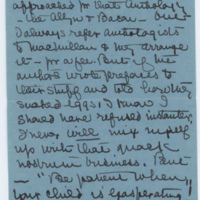 approached for that Anthology
- the Allyn & Bacon - One
I always refer anthologists
to Macmillan & they arrange
it - for a fee. But if the
authors wrote prefaces to
their stuff and told how they
sucked eggs, I know I
should have refused instanter.
I never will mix myself
up with that quack
nostrum business. But
- "Be patient when
your child is exasperating